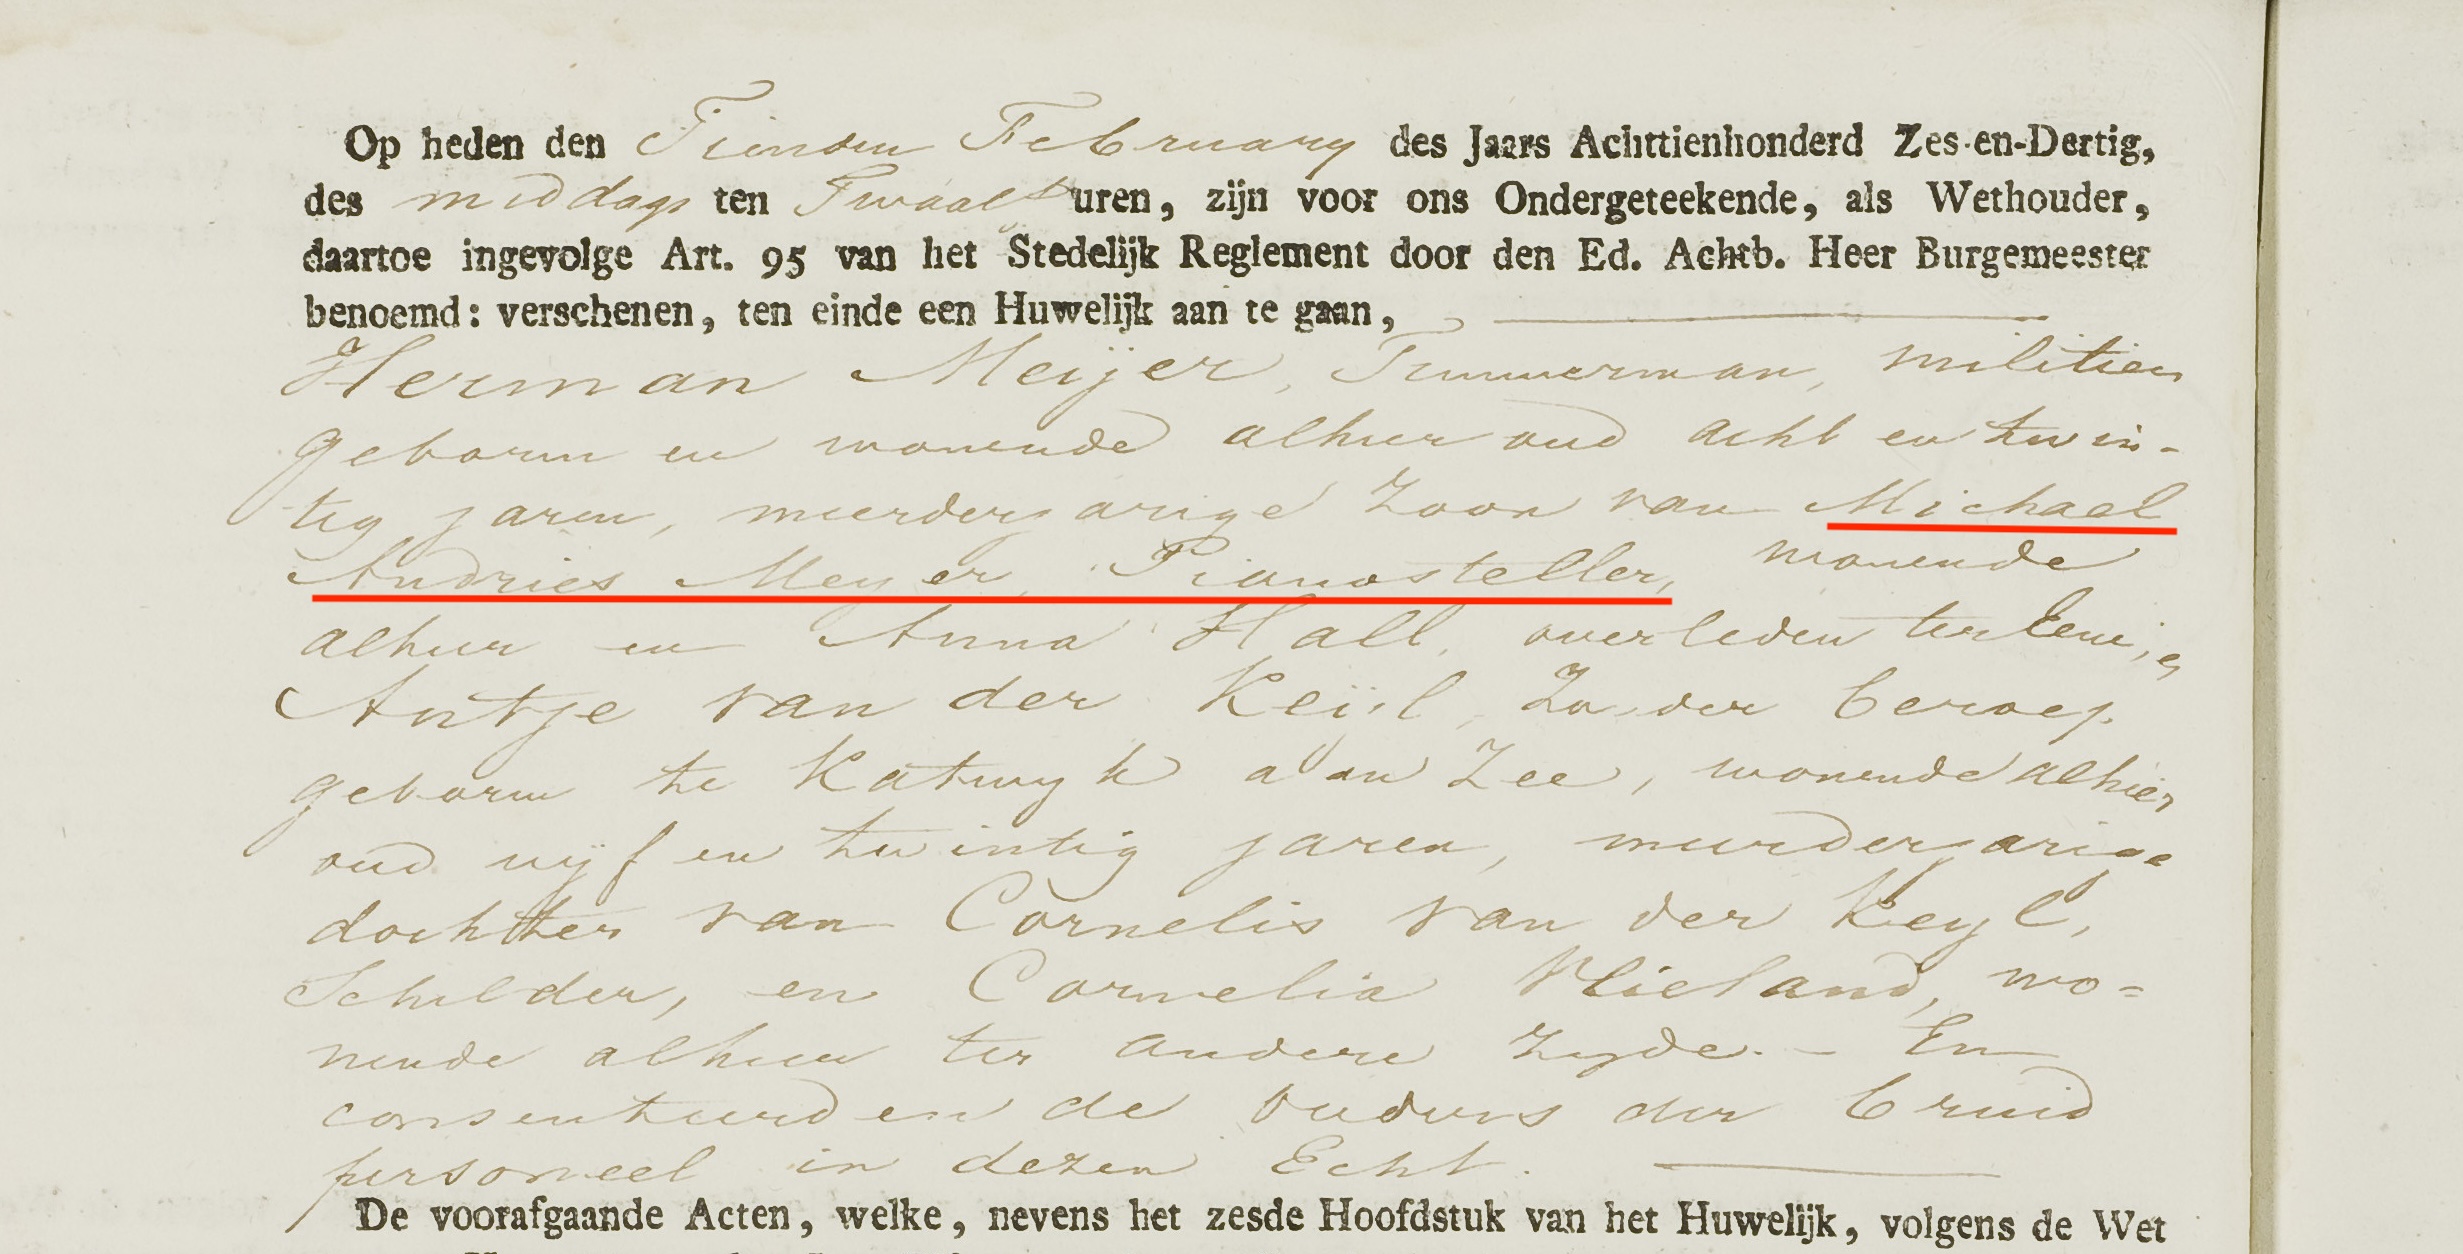 Op heden den Tienden February des Jaars Achttienhonderd Zes-en-Dertig,
des middags ten Twaalf uren, zijn voor ons Ondergeteekende, als Wethouder,
daartoe ingevolge Art. 95 van het Stedelijk Reglement door den Ed. Achtb. Heer Burgemeester
benoemd: verschenen, ten einde een Huwelijk aan te gaan,
Herman Meijer, Timmerman, militien
geboren en wonende alhier oud acht en twin-
tig jaren, meerderjarige zoon van Michael
Andries Meyer, Pianosteller, wonende
alhier en Anna Hall, overleden ter Eene, en
Antje van der Keijl, Zonder beroep,
geboren te Katwyk aan Zee, wonende alhier,
oud vijf en twintig jaren, meerderjarige
dochter van Cornelis van der Keyl,
Schilder, en Cornelia Vlieland, wo=
nende alhier ter andere zyde. - En
consenteerden de ouders der bruid
personeel in dezen Echt.
De voorafgaande Acten, welke, nevens het zesde Hoofdstuk van het Huwelijk, volgens de Wet